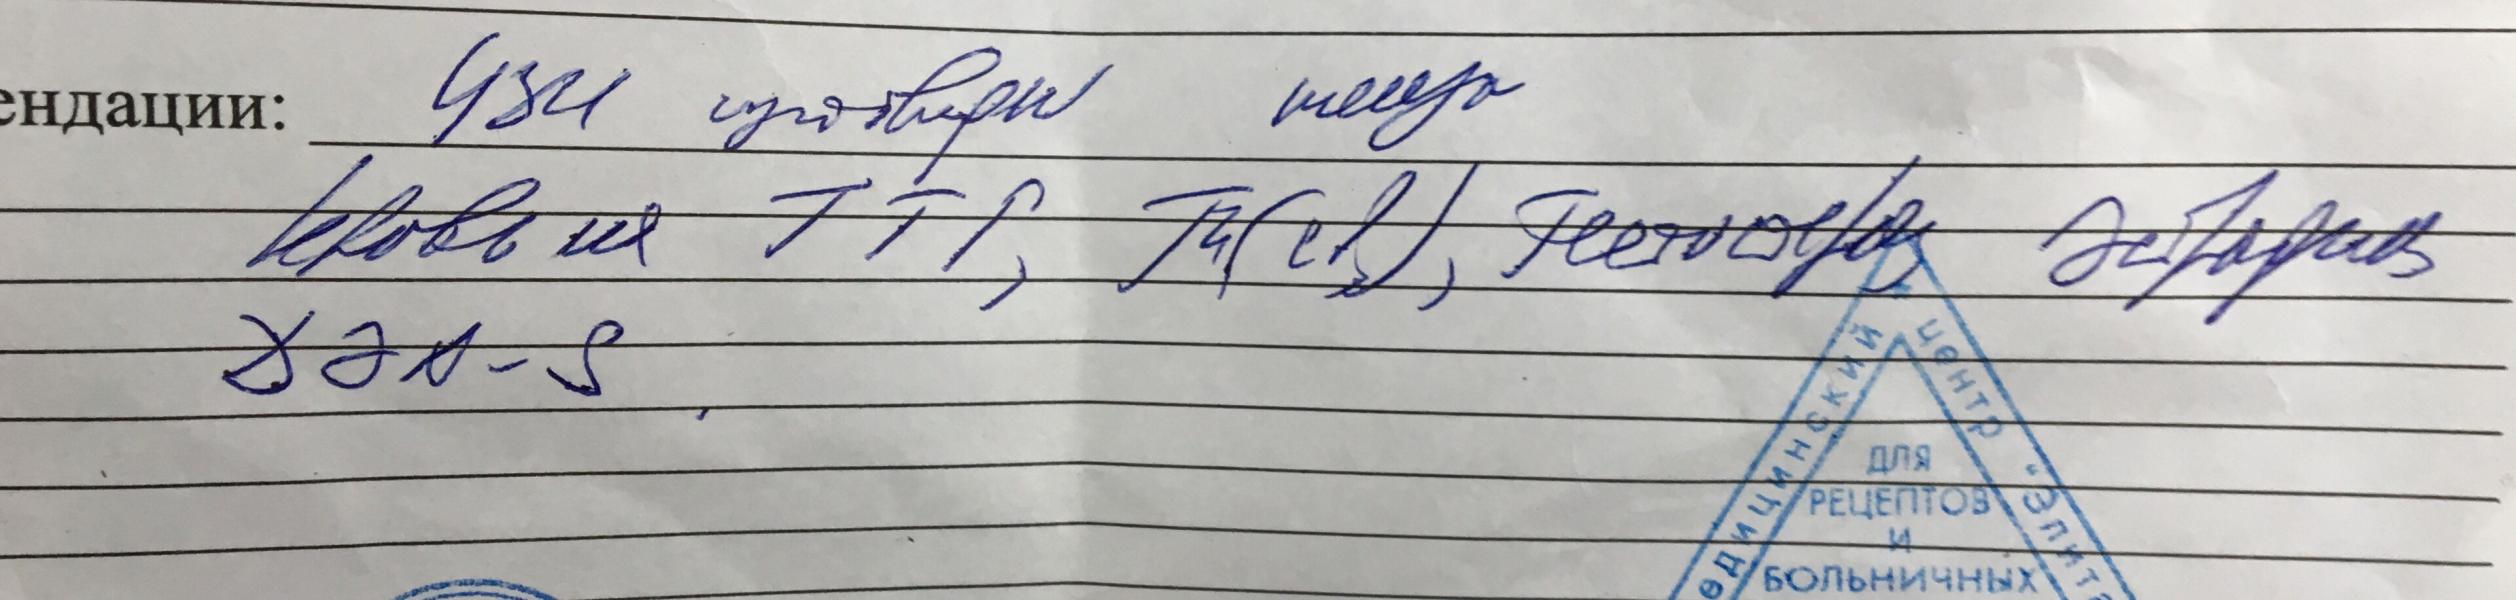 ендации: УЗИ щитовидн железы
Кровь на ТТГ, Т4(св), Тестостерон Эстрадиол
ДЭА-S
МЕДИЦИНСКИЙ ЦЕНТР "ЭЛИТ
ДЛЯ
РЕЦЕПТОВ
И
БОЛЬНИЧНЫХ